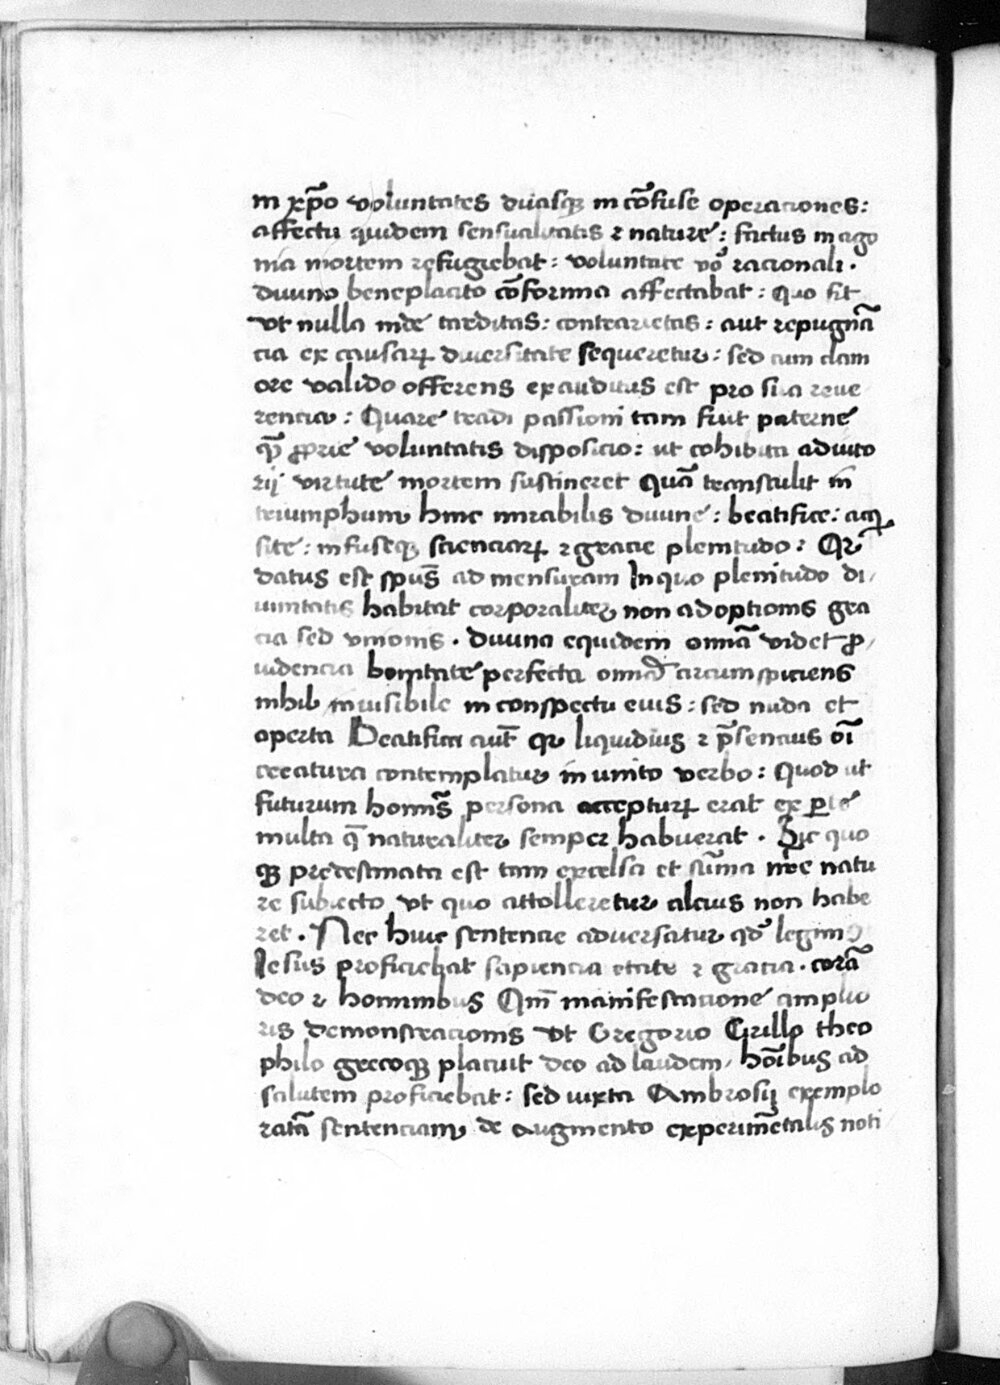 in xp̄o voluntates duasqꝫ in cōfuse operaciones:
affectu quidem sensualitatis ⁊ nature: factus in ago
nia mortem refugiebat: voluntate vo᷎ racionali.
diuino beneplacito cōformia affectabat: Quo fit
vt nulla inde tarditas: contrarietas: aut repugnā
cia ex causarꝝ diuersitate sequeretur: sed cum clam
ore valido offerens exauditus est pro sua reue
rencia: Quare tradi passioni tam fuit paterne
qͣꝫ ꝓprie voluntatis disposicio: ut cohibita adiuto
rij virtute mortem sustineret Quā transtulit in
triumphum hinc mirabilis diuine: beatifice: acq̇
site: infuseqꝫ scienciarꝝ ⁊ gracie plenitudo: Qꝛ
datus est spūs ad mensuram In quo plenitudo di
uinitatis habitat corporaliter non adoptionis gra
cia sed vnionis. Diuina equidem omīa videt ꝓ
uidencia bonitate perfecta omīa circumspiciens
nihil inuisibile in conspectu eius: sed nuda et
aperta Beatifica aūt qꝛ liquidius ⁊ p̄sencius oī
creatura contemplatur in unito verbo: Quod ut
futurum homīs persona accepturꝝ erat ex ꝑte
multa q̄ naturaliter semper habuerat. Sic quo
qꝫ predestinata est tam excelsa et sūma nr̄e natu
re subiecto vt quo attolleretur alcius non habe
ret. Nec huic sentencie aduersatur qd᷎ legimꝰ
Iesus proficiebat sapiencia etate ⁊ gracia. corā
deo ⁊ hominibus Qm̄ manifestacione amplio
ris demonstracionis vt Gregorio Cirillo theo
philo grecoqꝫ placuit deo ad laudem, hoīibus ad
salutem proficiebat: sed iuxta Ambrosij exemplo
ratā sentenciam de augmento experimētalis noti